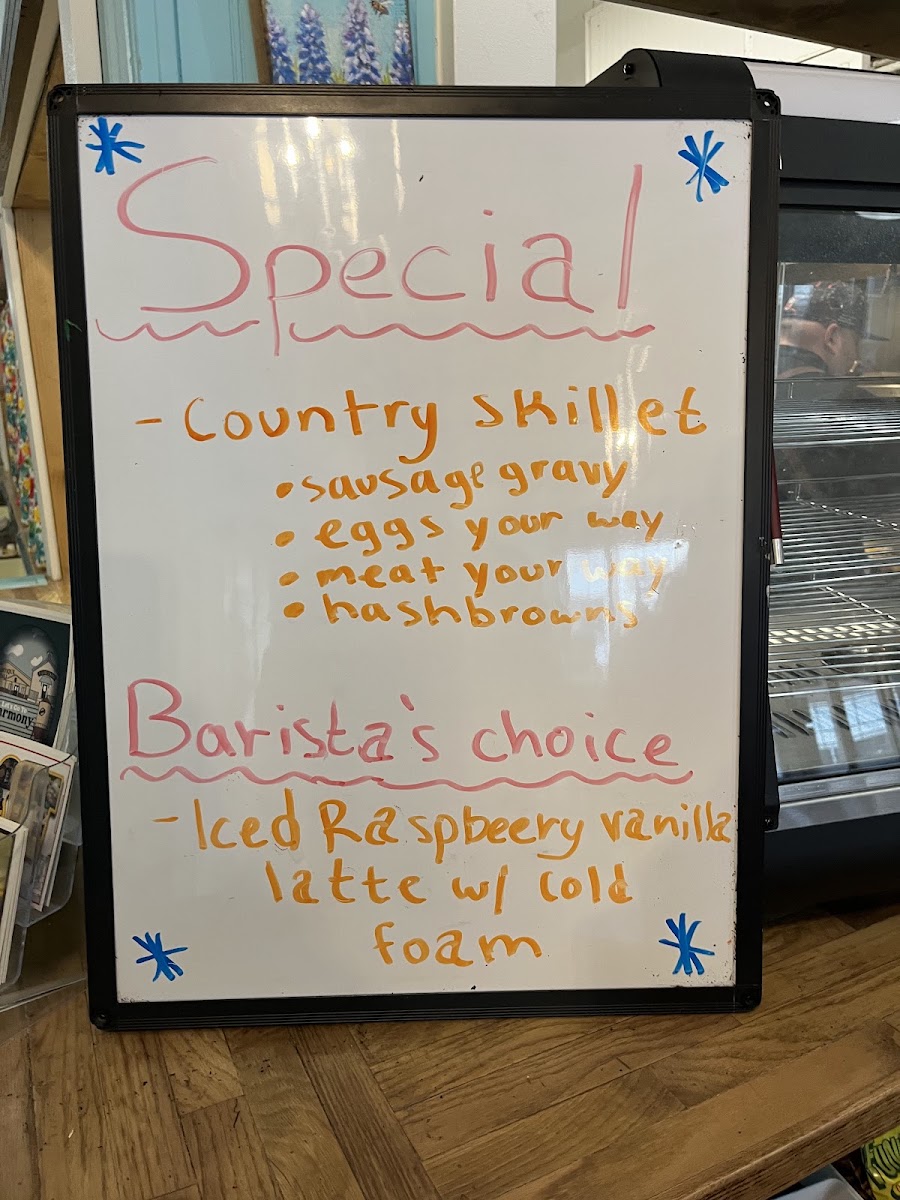 Special
- Country skillet
• sausage gravy
• eggs your way
• meat your way
• hashbrowns
Barista's choice
- Iced Raspbeery vanilla
latte w/ cold
foam
armony